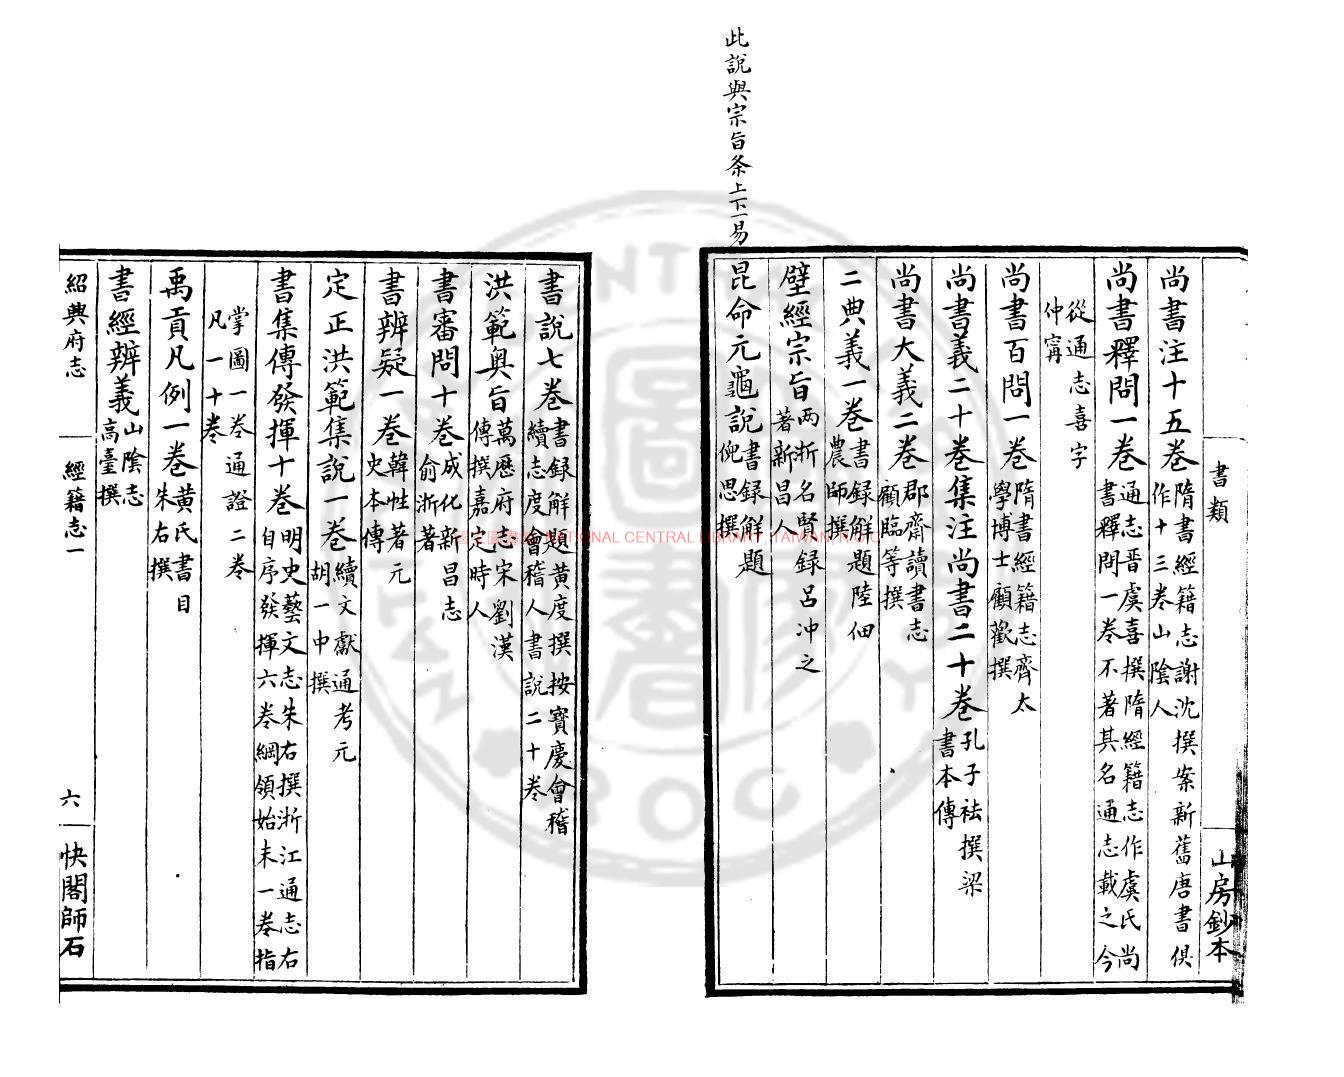 此說與宗旨条上下一易
書類
山房鈔本
尚書注十五卷隋書經籍志謝沈撰案新舊唐書俱
作十三卷山陰人
尚書釋問一卷通志晉虞喜撰隋經籍志作虞氏尚
書釋問一卷不著其名通志載之今
從通志喜字
仲甯
尚書百問一卷隋書經籍志齊太
學博士顧歡撰
尚書義二十卷集注尚書二十卷孔子袪撰梁
書本傳
尚書大義二卷郡齋讀書志
顧臨等撰
二典義一卷書録解題陸佃
農師撰
壁經宗旨兩浙名賢録呂冲之
著新昌人
昆命元龜說書録解題
倪思撰
書說七卷書録解題黃度撰按寶慶會稽
續志度會稽人書說二十卷
洪範奥旨萬歷府志宋劉漢
傳撰嘉定時人
書審問十卷成化新昌志
俞浙著
書辨疑一卷韓性著元
史本傳
定正洪範集說一卷續文獻通考元
胡一中撰
書集傳發揮十卷明史藝文志朱右撰浙江通志右
自序發揮六卷綱領始末一卷指
掌圖一卷通證二卷
凡一十卷
禹貢凡例一卷黃氏書目
朱右撰
書經辨義山陰志
高臺撰
紹興府志
經籍志一
六
快閣師石
國家圖書館 NATIONAL CENTRAL LIBRARY, TAIWAN, R.O.C